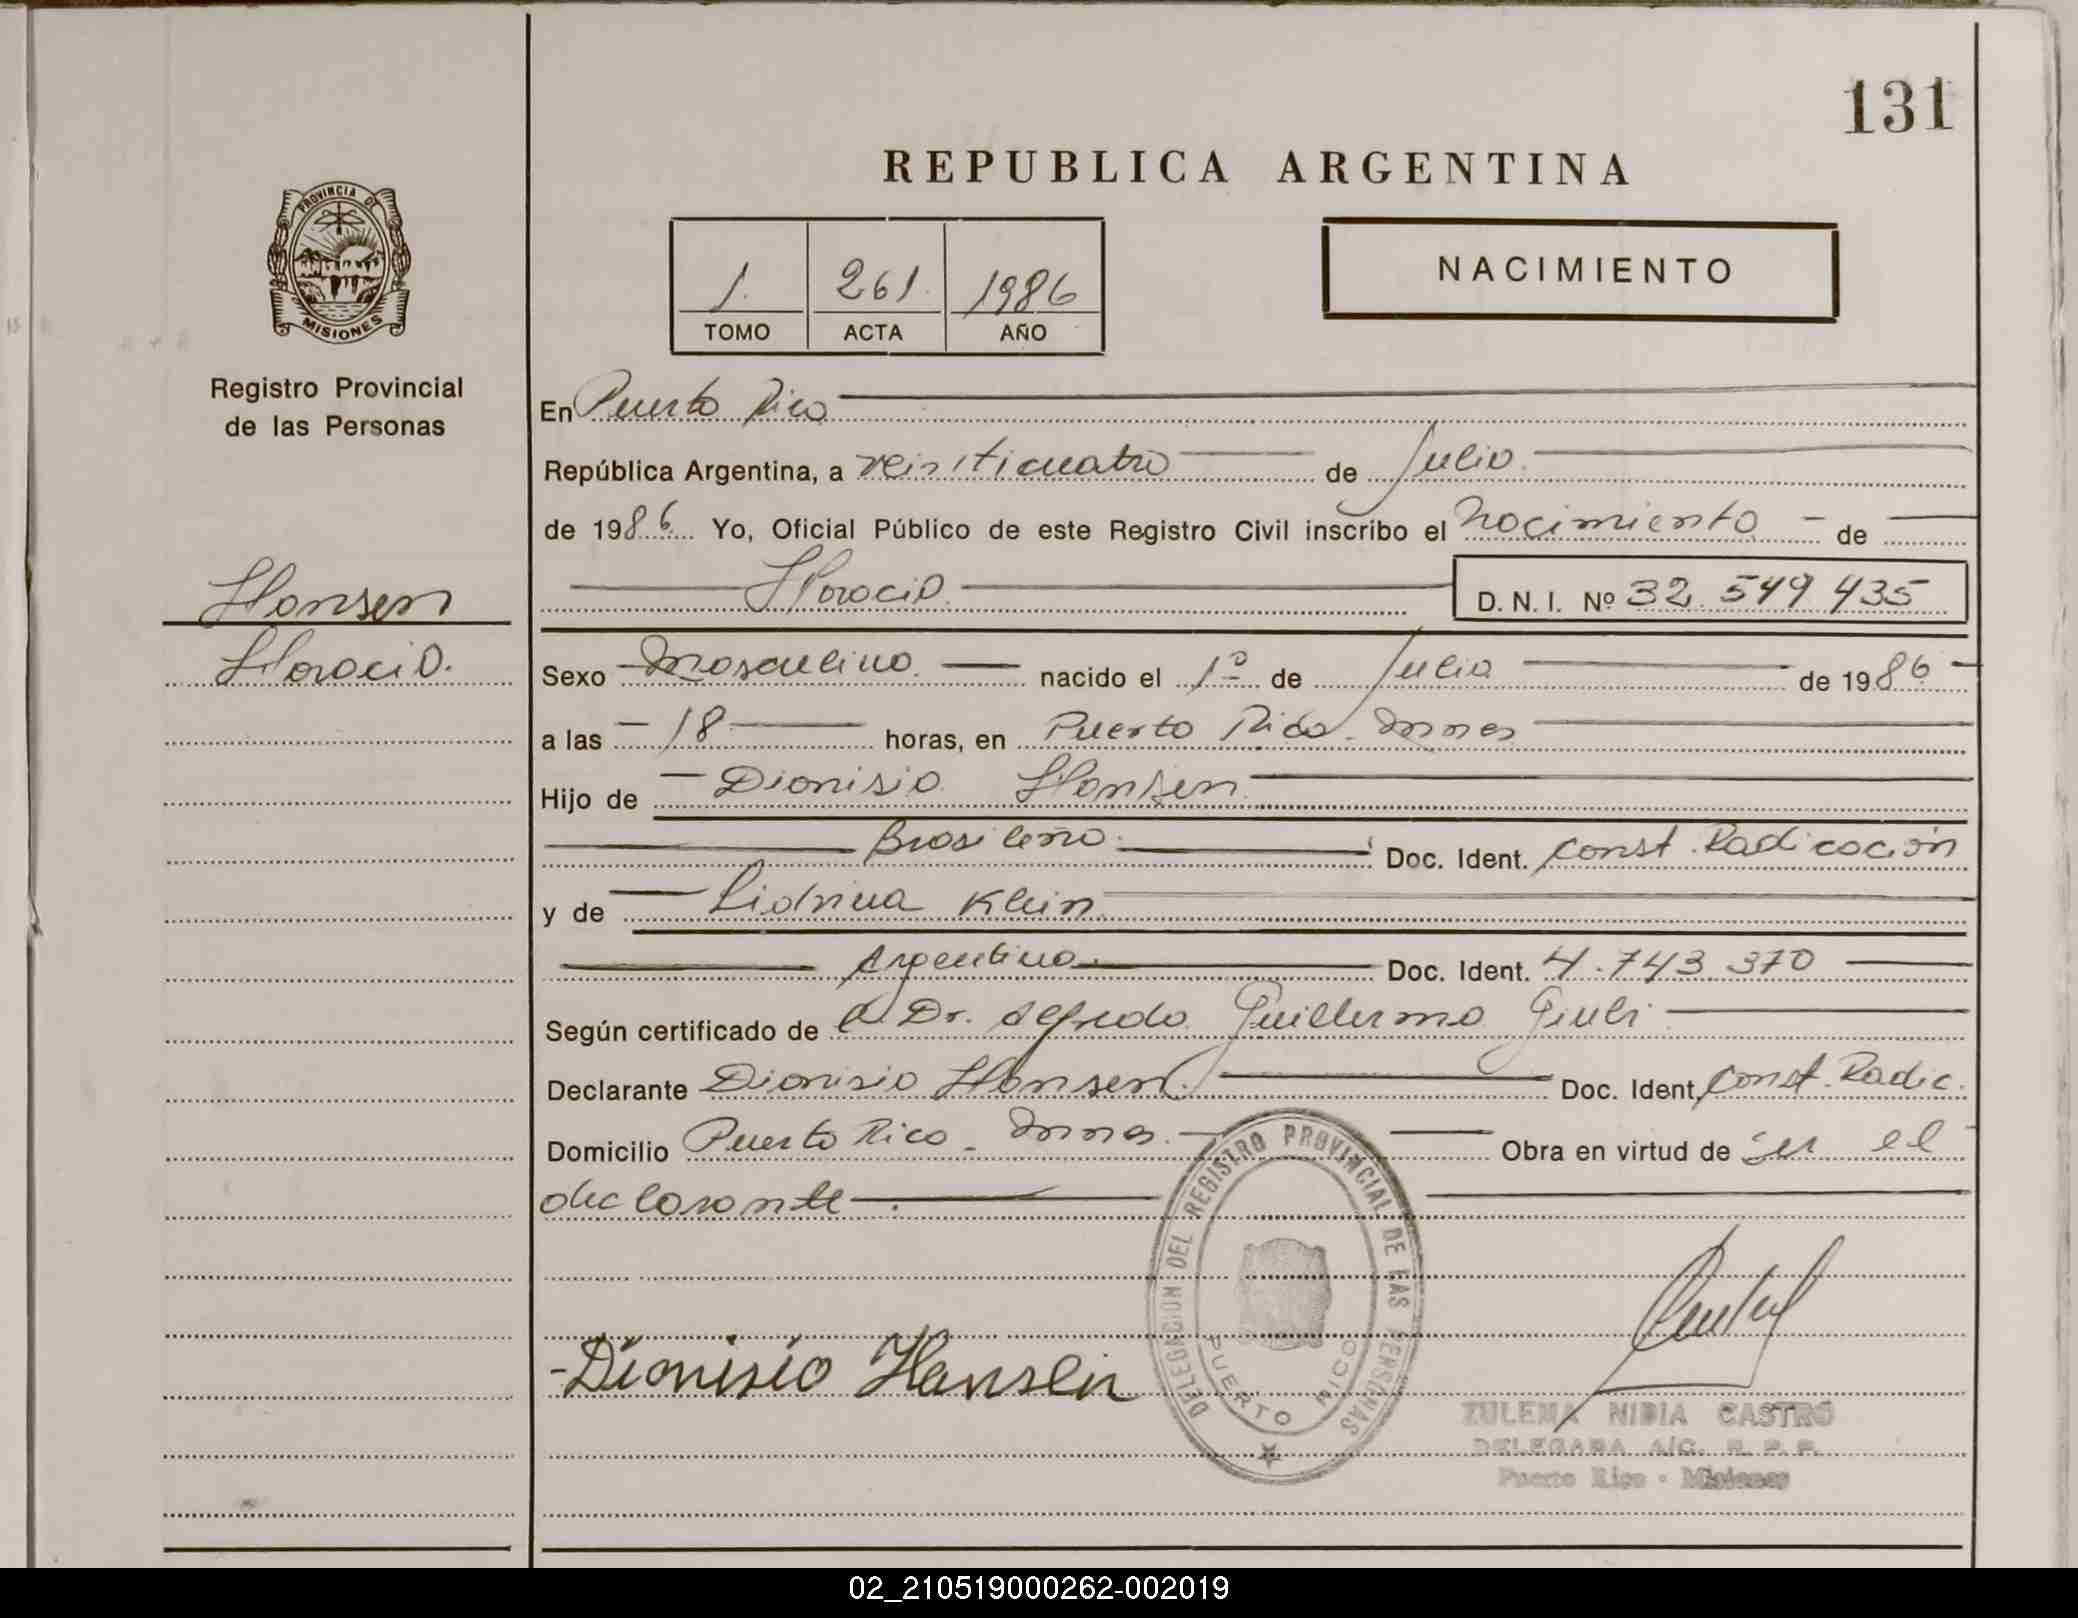 131
REPUBLICA ARGENTINA
PROVINCIA DE MISIONES
1. 261. 1986
TOMO ACTA AÑO
NACIMIENTO
Registro Provincial
de las Personas
Hansen
Horacio.
En Puerto Rico
República Argentina, a veinticuatro de Julio.
de 1986. Yo, Oficial Público de este Registro Civil inscribo el Nacimiento de
Horacio. D. N. I. Nº 32.549.435
Sexo Masculino. nacido el 1º de Julio de 1986
a las 18 horas, en Puerto Rico. Mnes
Hijo de Dionisio Hansen
Brasileño. Doc. Ident. Const. Radicación
y de Klein
Argentina. Doc. Ident. 4.743.370
Según certificado de el Dr. Alfredo Guillermo
Declarante Dionisio Hansen. Doc. Ident. Const. Radic.
Domicilio Puerto Rico - Mnes. Obra en virtud de ser el
declarante.
DELEGACION DEL REGISTRO PROVINCIAL DE LAS PERSONAS
PUERTO RICO
-Dionisio Hansen
ZULEMA NIDIA CASTRO
DELEGADA A/C. R. P. P.
Puerto Rico - Misiones
02_210519000262-002019